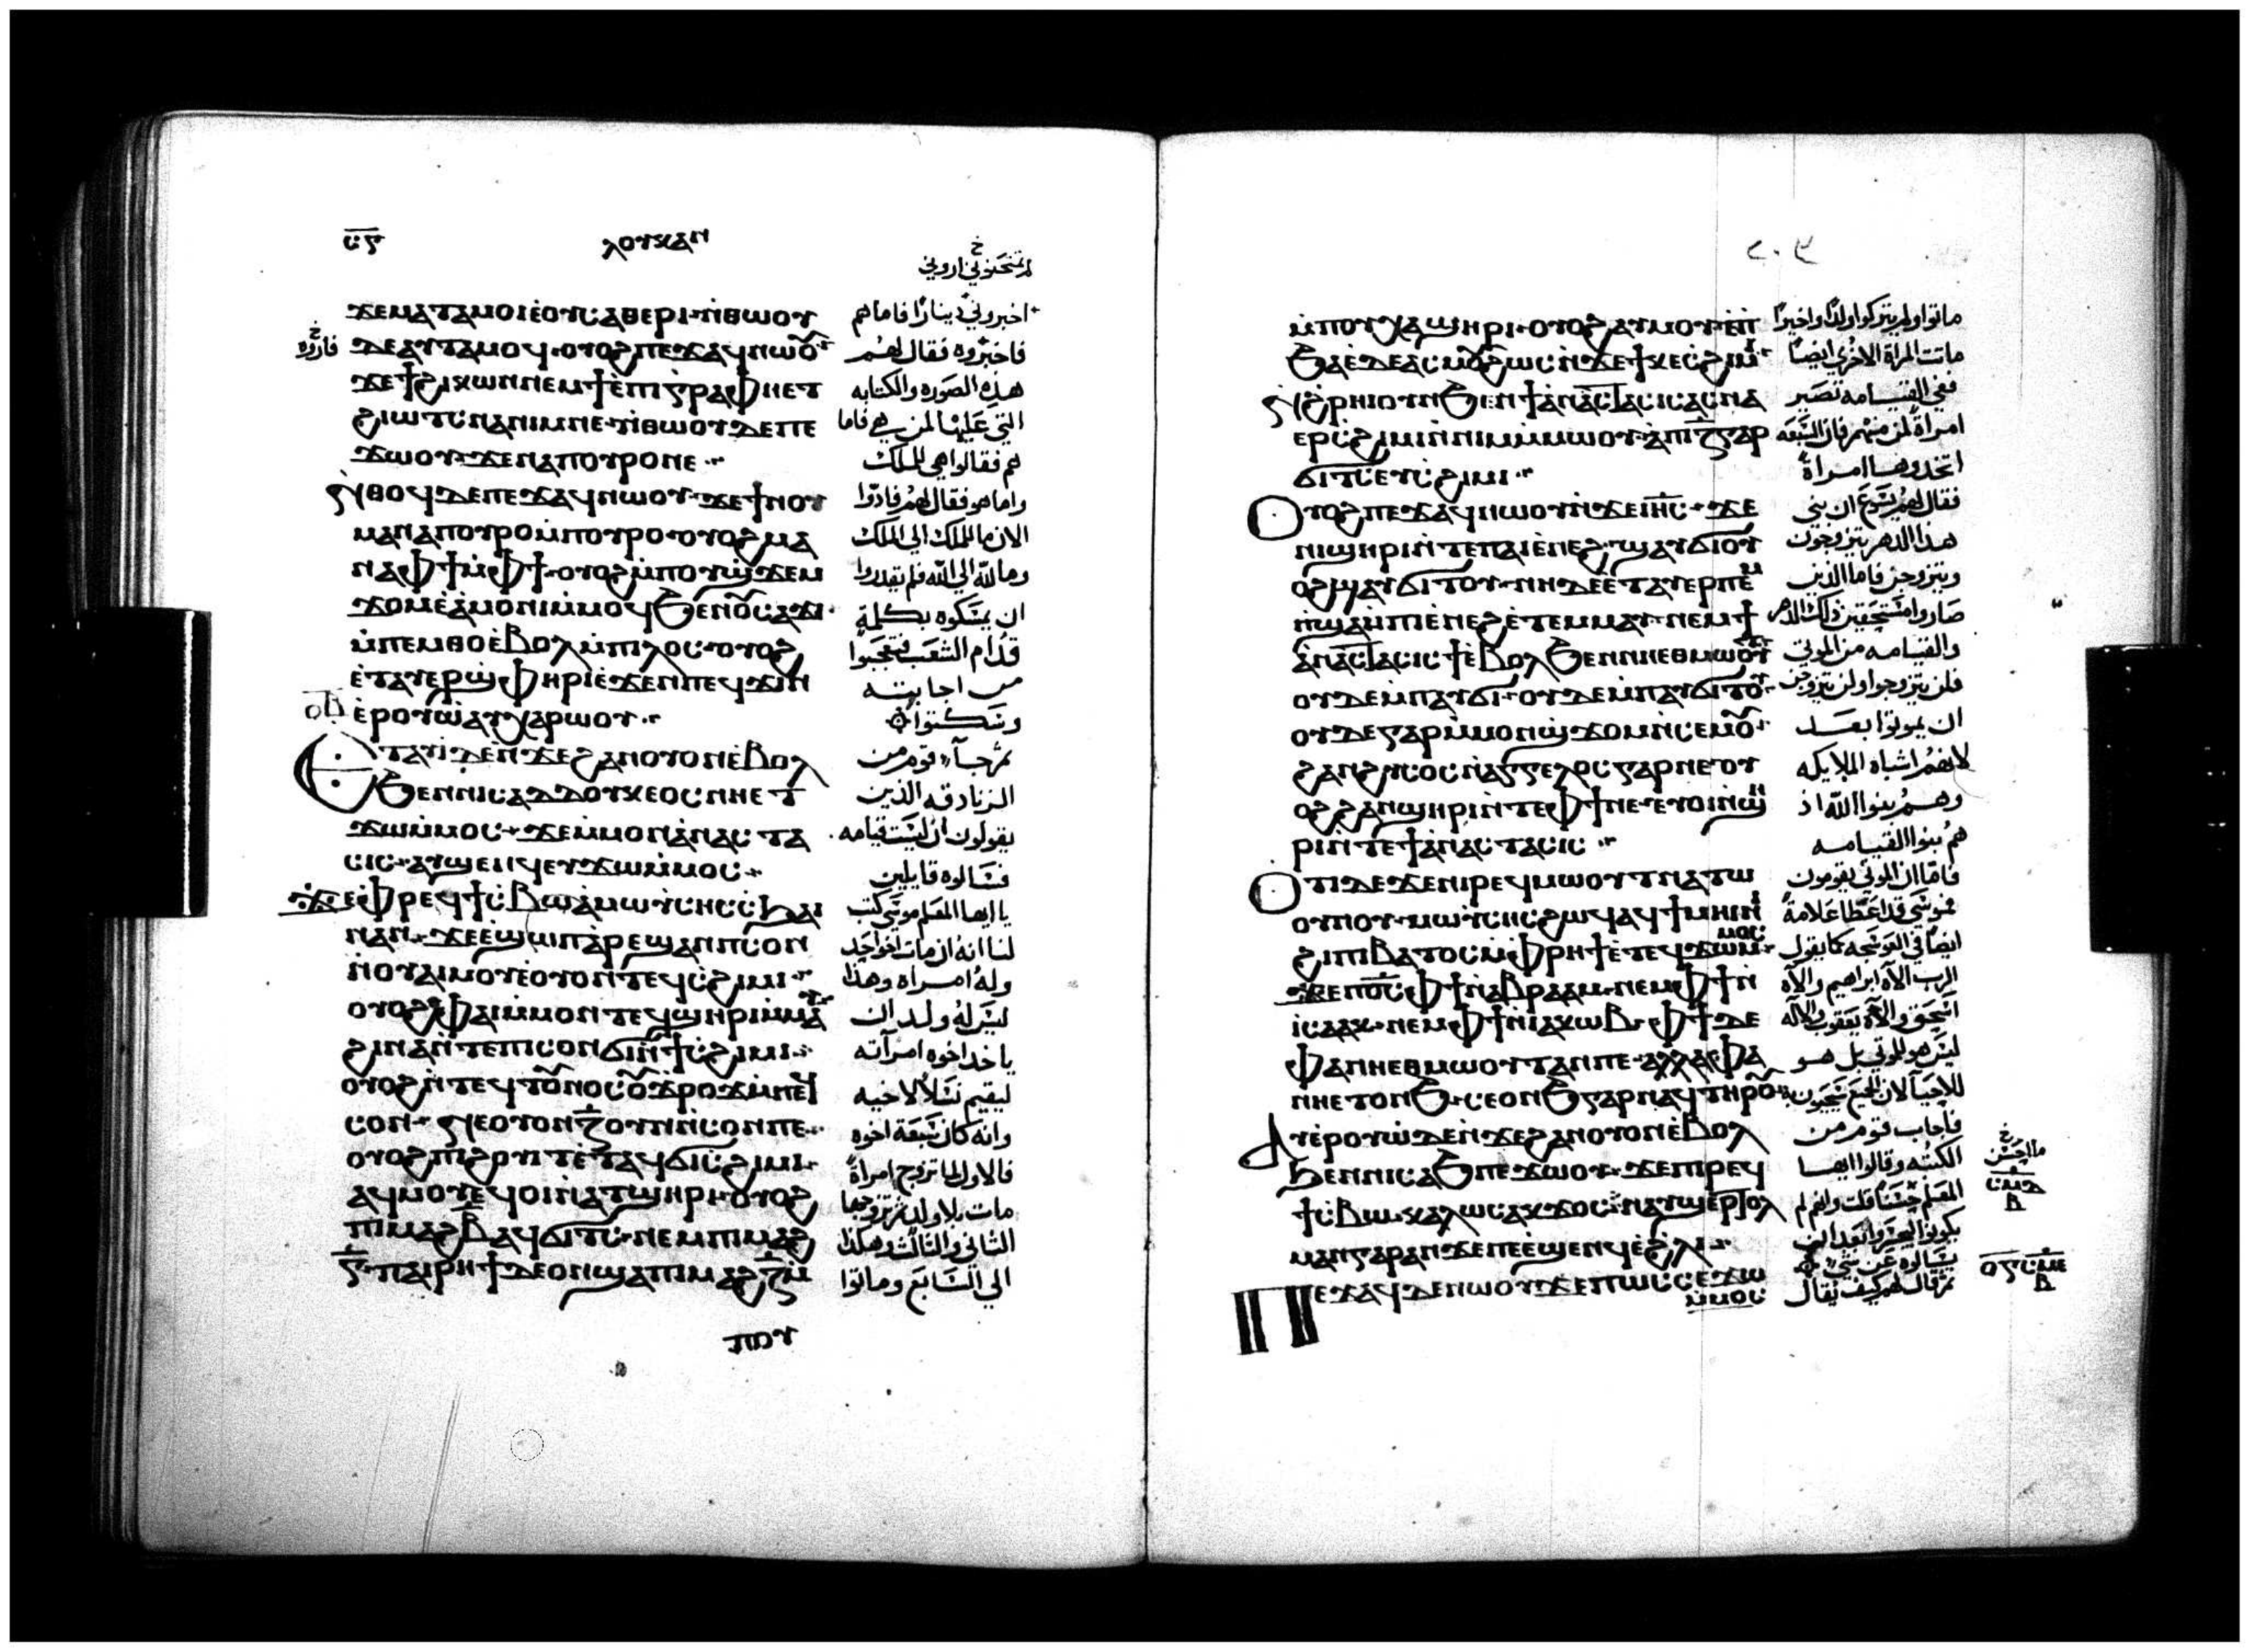 ⲥ̅ⲋ̅
ⲗⲟⲩⲕⲁⲛ
ϫⲉⲙⲁⲧⲁⲙⲟⲓⲉ̀ⲟⲩⲥⲁⲑⲉⲣⲓ·ⲛ̀ⲑⲱⲟⲩ
ⲇⲉⲁⲩⲧⲁⲙⲟϥ·ⲟⲩⲟϩⲡⲉϫⲁϥⲛⲱⲟⲩ
ϫⲉϯϩⲓⲕⲱⲛⲛⲉⲙϯⲉ̀ⲡⲓⲅⲣⲁⲫⲏⲉⲧ
ϩⲓⲱⲧⲥⲛⲁⲛⲓⲙⲛⲉ·ⲛ̀ⲑⲱⲟⲩⲇⲉⲡⲉ
ϫⲱⲟⲩ·ϫⲉⲛⲁⲡⲟⲩⲣⲟⲛⲉ
ⲛ̀ⲑⲟϥⲇⲉⲡⲉϫⲁϥⲛⲱⲟⲩ·ϫⲉϯⲛⲟⲩ
ⲙⲁⲛⲁⲡⲟⲩⲣⲟⲙ̀ⲡⲟⲩⲣⲟ·ⲟⲩⲟϩⲙⲁ
ⲛⲁⲫϯⲙ̀ⲫϯ·ⲟⲩⲟϩⲙ̀ⲡⲟⲩϣϫⲉⲙ
ϫⲟⲙⲉ̀ⲁ̀ⲙⲟⲛⲓⲙ̀ⲙⲟϥϧⲉⲛⲟⲩⲥⲁϫⲓ
ⲙ̀ⲡⲉⲙⲑⲟⲉ̀ⲃⲟⲗⲙ̀ⲡⲓⲗⲁⲟⲥ·ⲟⲩⲟϩ
ⲉ̀ⲧⲁⲩⲉⲣϣⲫⲏⲣⲓⲉ̀ϫⲉⲛⲡⲉϥϫⲓⲛ
ⲉⲣⲟⲩⲱ̀ⲁⲩⲭⲁⲣⲱⲟⲩ
ⲉⲧⲁⲩⲓ̀ⲇⲉⲛ̀ϫⲉϩⲁⲛⲟⲩⲟⲛⲉ̀ⲃⲟⲗ
ϧⲉⲛⲛⲓⲥⲁⲇⲇⲟⲩⲕⲉⲟⲥⲛⲏⲉⲧ
ϫⲱⲙ̀ⲙⲟⲥ·ϫⲉⲙ̀ⲙⲟⲛⲁ̀ⲛⲁⲥⲧⲁ
ⲥⲓⲥ·ⲁⲩϣⲉⲛϥⲉⲩϫⲱⲙ̀ⲙⲟⲥ
ϫⲉⲫⲣⲉϥϯⲥⲃⲱⲁ̀ⲙⲱⲩ̀ⲥⲏⲥⲥϧⲁⲓ
ⲛⲁⲛ·ϫⲉⲉ̀ϣⲱⲡⲁⲣⲉϣⲁⲛⲡⲥⲟⲛ
ⲛ̀ⲟⲩⲁⲓⲙⲟⲩⲉ̀ⲟⲩⲟⲛⲧⲉϥⲥϩⲓⲙⲓ
ⲟⲩⲟϩⲫⲁⲓⲙ̀ⲙⲟⲛⲧⲉϥϣⲏⲣⲓⲙ̀ⲙⲁⲩ
ϩⲓⲛⲁⲛⲧⲉⲡⲓⲥⲟⲛϭⲓⲛϯⲥϩⲓⲙⲓ
ⲟⲩⲟϩⲛ̀ⲧⲉϥⲧⲟⲩⲛⲟⲥⲟⲩϫⲣⲟϫⲙ̀ⲡⲉϥ
ⲥⲟⲛ·ⲛⲉⲟⲩⲟⲛⲍ̅ⲟⲩⲛⲛ̀ⲥⲟⲛⲡⲉ
ⲟⲩⲟϩⲡⲓϩⲟⲩⲓⲧⲉ̀ⲧⲁϥϭⲓⲥϩⲓⲙⲓ
ⲁϥⲙⲟⲩⲉϥⲟⲓⲛ̀ⲁⲧϣⲏⲣⲓ·ⲟⲩⲟϩ
ⲡⲓⲙⲁϩⲃ̅ⲁϥϭⲓⲧⲥ·ⲛⲉⲙⲡⲓⲙⲁϩ
ⲅ̅·ⲡⲁⲓⲣⲏϯⲇⲉⲟⲛϣⲁⲡⲓⲙⲁϩⲍ̅
ⲙ̀ⲡⲟⲩ
اروني
اخبروني دينارا فاما هم
فاخبروه فقال لهم
هذه الصوره والكتابه
التي عليها لمن هي فاما
هم فقالوا هي للملك
واما هو فقال لهم فادوا
الان ما للملك الي الملك
وما لله الي الله فلم يقدروا
ان يمسكوه بكلمة
قدام الشعب فتعجبوا
من اجابته
وسكتوا
ثم جآء قوم من
الزنادقه الذين
يقولون ان ليست قيامه
فسالوه قايلين
يا ايها المعلم موسي كتب
لنا انه ان مات اخو احد
وله امراه وهذا
ليس له ولد ان
ياخد اخوه امرآته
ليقيم نسلا لاخيه
وانه كان سبعة اخوه
فالاول لما تزوج امراة
مات بلا ولد ثم تزوجها
الثاني والثالث وهكذا
الي السابع وماتوا
ⲙ̀ⲡⲟⲩⲭⲁϣⲏⲣⲓ·ⲟⲩⲟϩⲁⲩⲙⲟⲩ·ⲉ̀ⲡ
ϧⲁⲉ̀ⲇⲉⲁⲥⲙⲟⲩϩⲱⲥⲛ̀ϫⲉϯⲕⲉⲥϩⲓⲙⲓ
ⲛ̀ϩⲣⲏⲓⲟⲩⲛϧⲉⲛϯⲁ̀ⲛⲁⲥⲧⲁⲥⲓⲥⲁⲥⲛⲁ
ⲉⲣⲥϩⲓⲙⲓⲛ̀ⲛⲓⲙⲙ̀ⲙⲱⲟⲩ·ⲁ̀ⲡⲓⲍ̅ⲅⲁⲣ
ϭⲓⲧⲥⲉⲩⲥϩⲓⲙⲓ
ⲟⲩⲟϩⲡⲉϫⲁϥⲛⲱⲟⲩⲛ̀ϫⲉⲓⲏ̅ⲥ̅·ϫⲉ
ⲛⲓϣⲏⲣⲓⲛ̀ⲧⲉⲡⲁⲓⲉ̀ⲛⲉϩ·ϣⲁⲩϭⲓⲟⲩ
ⲟϩϣⲁⲩϭⲓⲧⲟⲩ·ⲛⲏⲇⲉⲉ̀ⲧⲁⲩⲉⲣⲡⲉⲙ
ⲡϣⲁⲙ̀ⲡⲓⲉ̀ⲛⲉϩⲉ̀ⲧⲉⲙⲙⲁⲩ·ⲛⲉⲙϯ
ⲁ̀ⲛⲁⲥⲧⲁⲥⲓⲥϯⲉ̀ⲃⲟⲗϧⲉⲛⲛⲏⲉⲑⲙⲱⲟⲩⲧ
ⲟⲩⲇⲉⲙ̀ⲡⲁⲩϭⲓ·ⲟⲩⲇⲉⲙ̀ⲡⲁⲩϭⲓⲧⲟⲩ
ⲟⲩⲇⲉⲅⲁⲣⲙ̀ⲙⲟⲛϣϫⲟⲙⲛ̀ⲥⲉⲙⲟⲩ
ϩⲁⲛϩⲓⲥⲟⲥⲛ̀ⲁⲅⲅⲉⲗⲟⲥⲅⲁⲣⲛⲉⲟⲩ
ⲟϩϩⲁⲛϣⲏⲣⲓⲛ̀ⲧⲉⲫϯⲛⲉ·ⲉⲩⲟⲓⲛ̀ϣⲏ
ⲣⲓⲛ̀ⲧⲉϯⲁ̀ⲛⲁⲥⲧⲁⲥⲓⲥ
ⲟⲧⲓⲇⲉϫⲉⲛⲓⲣⲉϥⲙⲱⲟⲩⲧⲛⲁⲧⲱ
ⲟⲩⲛⲟⲩ·ⲙⲱⲩ̀ⲥⲏⲥϩⲱϥⲁϥϯⲙⲏⲓⲛⲓ
ϩⲓⲡⲓⲃⲁⲧⲟⲥⲙ̀ⲫⲣⲏϯⲉ̀ⲧⲉϥϫⲱⲙⲙⲟⲥ
ϫⲉⲡⲟ̅ⲥ̅ⲫϯⲛ̀ⲁⲃⲣⲁⲁⲙ·ⲛⲉⲙⲫϯⲛ̀
ⲓⲥⲁⲁⲕ·ⲛⲉⲙⲫϯⲛ̀ⲓⲁⲕⲱⲃ·ⲫϯⲇⲉ
ⲫⲁⲛⲏⲉⲑⲙⲱⲟⲩⲧⲁⲛⲡⲉ·ⲁⲗⲗⲁⲫⲁ
ⲛⲏⲉⲧⲟⲛϧ·ⲥⲉⲟⲛϧⲅⲁⲣⲛⲁϥⲧⲏⲣⲟⲩ
ⲁⲩⲉ̀ⲣⲟⲩⲱ̀ⲇⲉⲛ̀ϫⲉϩⲁⲛⲟⲩⲟⲛⲉ̀ⲃⲟⲗ
ϧⲉⲛⲛⲓⲥⲁϧⲡⲉϫⲱⲟⲩ·ϫⲉⲡⲓⲣⲉϥ
ϯⲥⲃⲱ·ⲕⲁⲗⲱⲥⲁⲕϫⲟⲥ·ⲛⲁⲩϣⲉⲣⲧⲟⲗ
ⲙⲁⲛⲅⲁⲣⲁⲛϫⲉⲡⲉⲉ̀ϣⲉⲛϥⲉ̀ϩⲗⲓ
ⲡⲉϫⲁϥⲇⲉⲛⲱⲟⲩϫⲉⲡⲱⲥⲥⲉϫⲱ
ⲙ̀ⲙⲟⲥ
ماتوا ولم يتركوا ولدًا واخيرا
ماتت المراة الاخري ايضا
ففي القيامه تصير
امراة لمن منهم فان السبعه
اتخدوها امراة
فقال لهم يسوع ان بني
هذا الدهر يتزوجون
ويتزوجن فاما الذين
صاروا مستحقين ذلك الدهر
والقيامه من الموتي
فلن يتزوجوا ولن يتزوجن
ان يموتوا بعد
لانهم اشباه الملايكه
وهم بنوا الله اذ
هم بنوا القيامه
فاما ان الموتي يقومون
فموسي قد اعطا علامة
ايضا في العوسجه كما يقول
الرب الاه ابراهيم والاه
اسحق والاه يعقوب والاله
ليس هو للموتي بل هو
للاحيآ لان الجميع يحيون
فاجاب قوم من
الكتبه وقالوا ايها
المعلم حسنا قلت
يسالوه عن شيء
ثم قال لهم كيف يقال